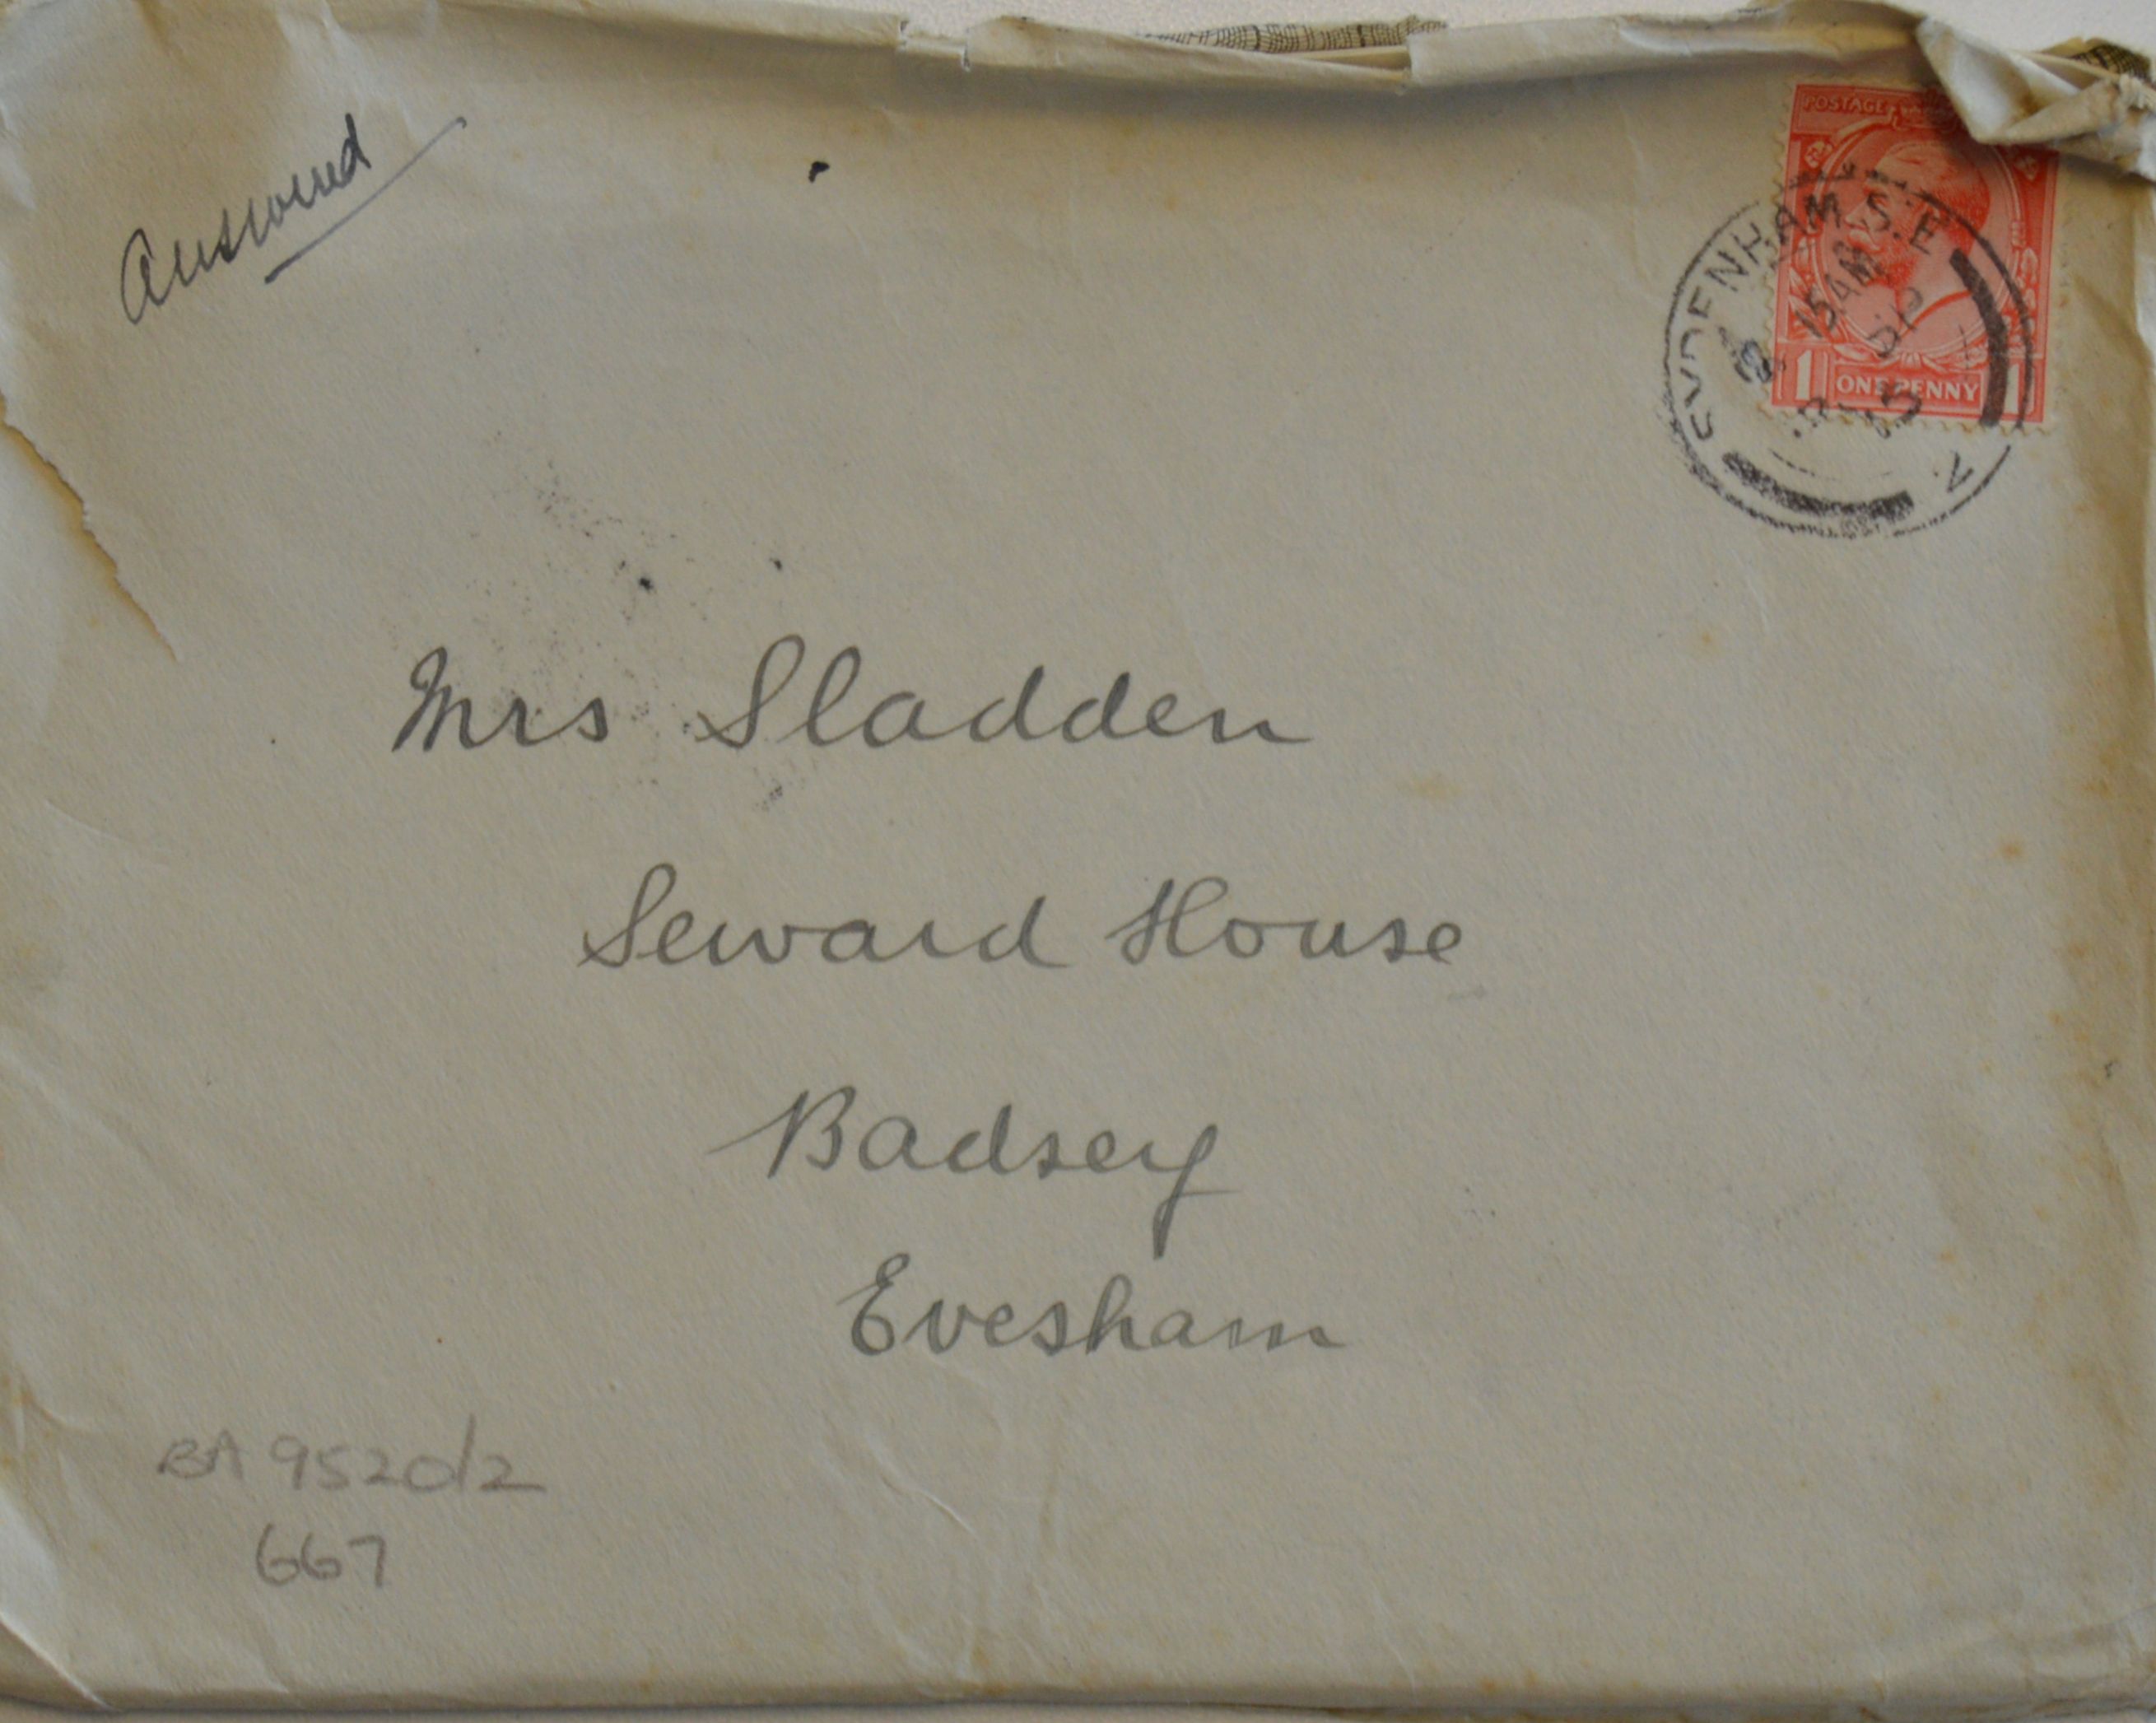 Answered
POSTAGE
SYDENHAM S.E
15 AM
1 ONE PENNY 1
Mrs Sladden
Seward House
Badsey
Evesham
BA 9520/2
667